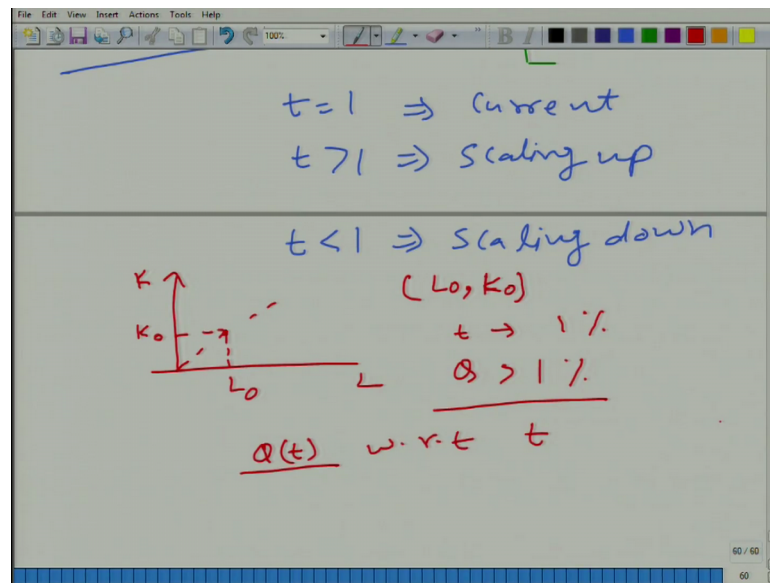 File Edit View Insert Actions Tools Help
100%
B I
t = 1 ⇒ Current
t > 1 ⇒ Scaling up
t < 1 ⇒ Scaling down
K
(L0, K0)
K0
t → 1 %
L0
L
Q > 1 %
Q(t) w.r.t t
60 / 60
60